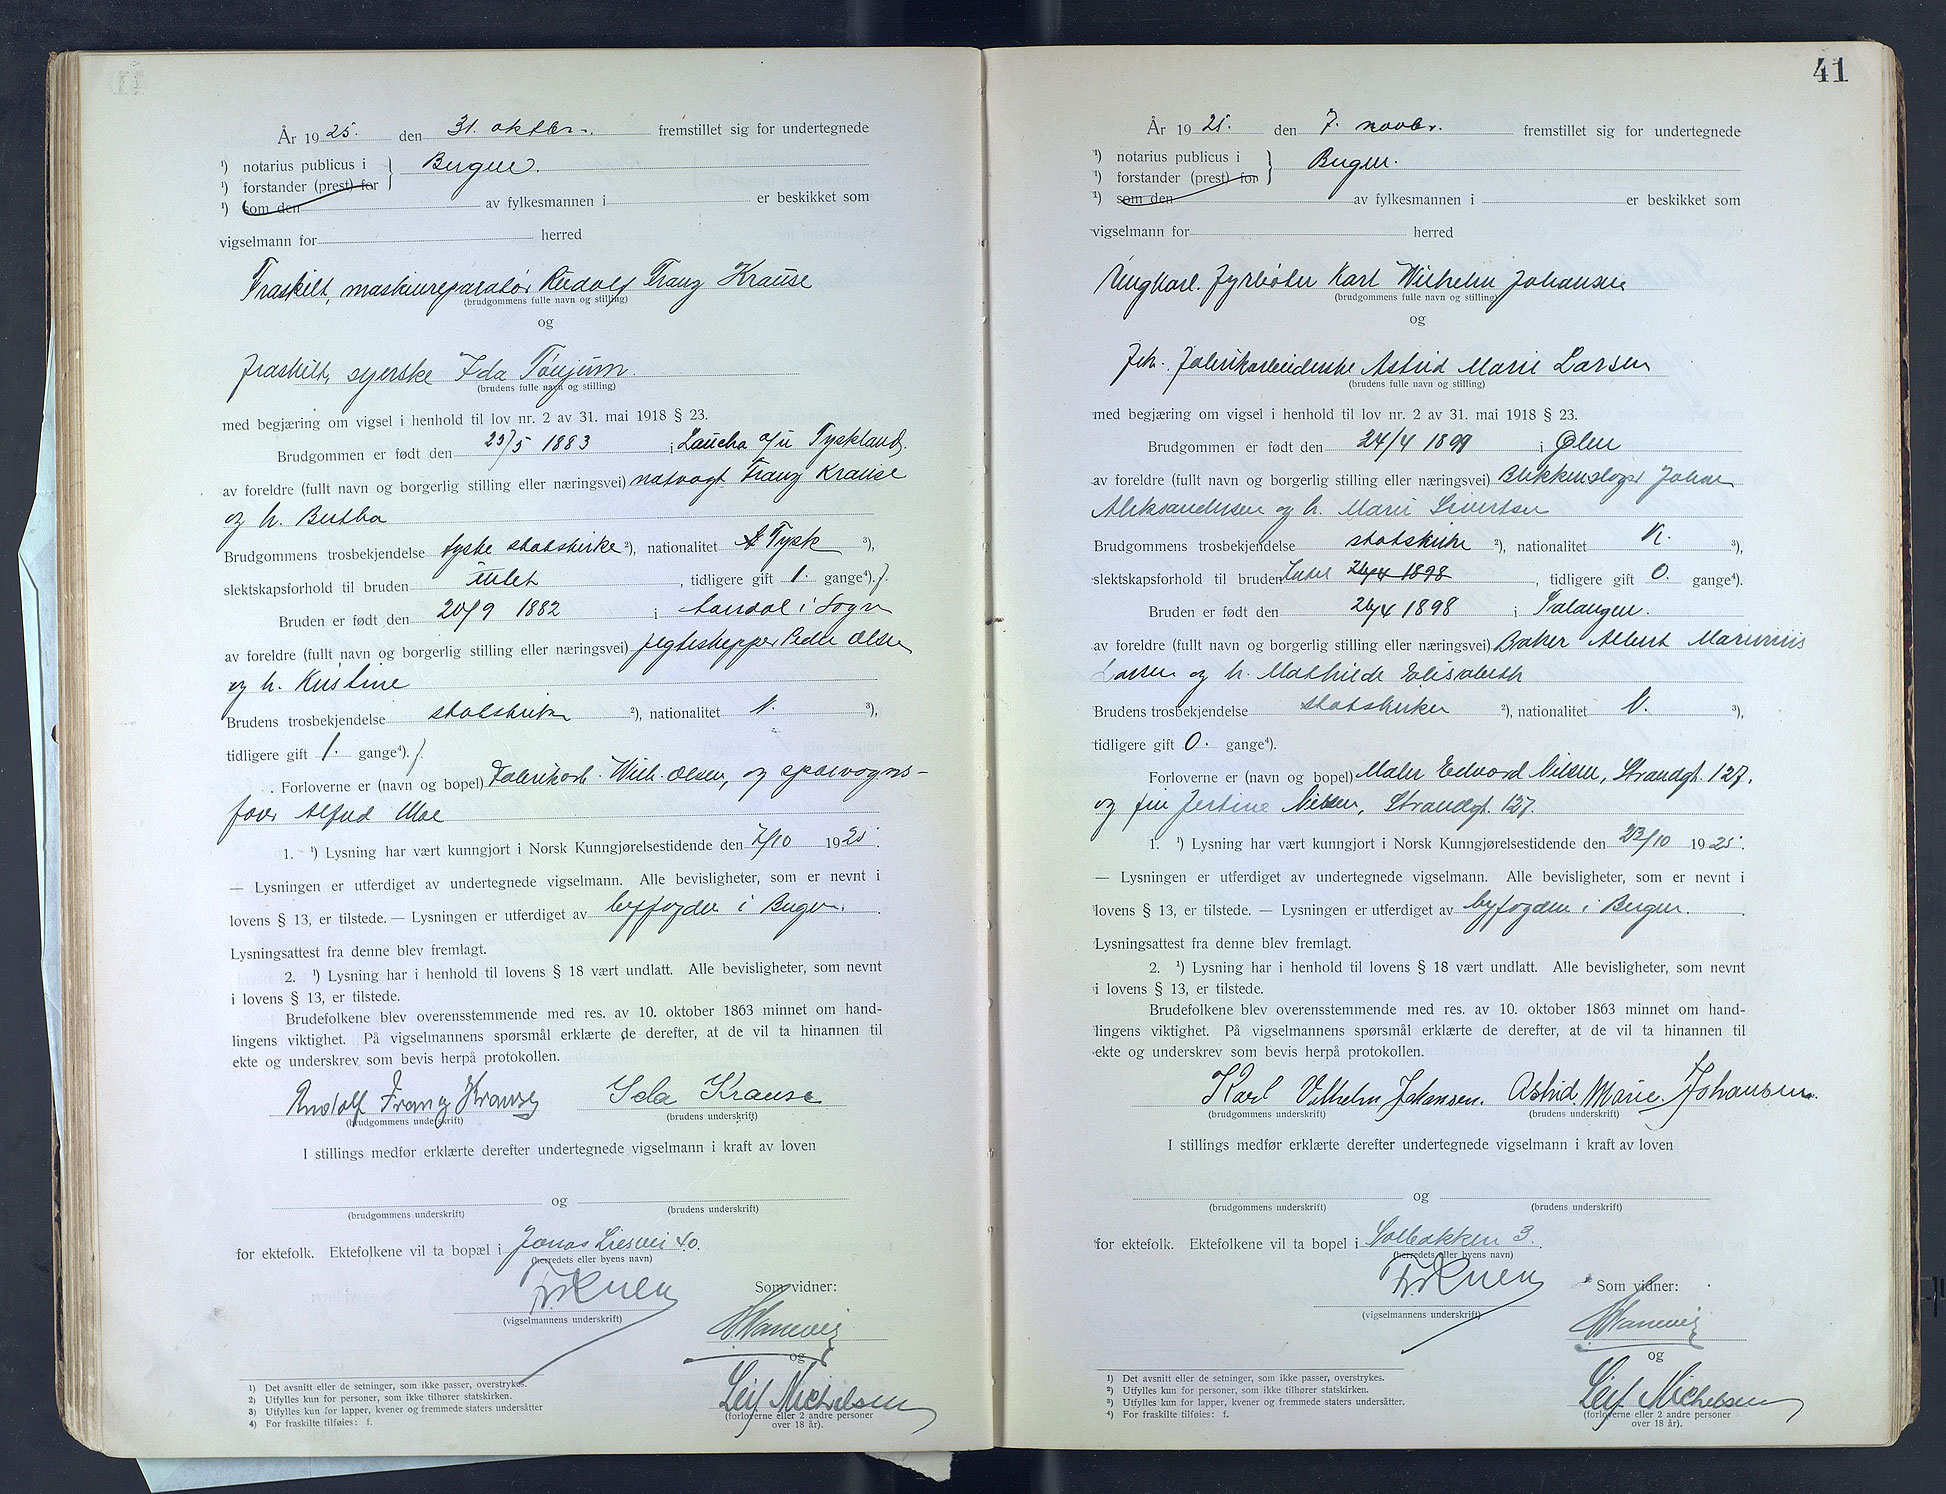 År 1925. den 31. oktbr. fremstillet sig for undertegnede
¹) notarius publicus i } Bergen.
¹) forstander (prest) for
¹) som den av fylkesmannen i er beskikket som
vigselmann for herred
Fraskilt, maskinreparatør Rudolf Franz Krause
(brudgommens fulle navn og stilling)
og
fraskilt, syerske Ida Tønjum.
(brudens fulle navn og stilling)
med begjæring om vigsel i henhold til lov nr. 2 av 31. mai 1918 § 23.
Brudgommen er født den 23/5 1883 i Laucha a/u Tyskland.
av foreldre (fullt navn og borgerlig stilling eller næringsvei) natvagt Franz Krause
og h. Bertha
Brudgommens trosbekjendelse tyske statskirke ²), nationalitet Tysk ³),
slektskapsforhold til bruden intet, tidligere gift 1. gange⁴). f.
Bruden er født den 20/9 1882 i Aardal i Sogn
av foreldre (fullt navn og borgerlig stilling eller næringsvei) jegteskipper Peder Olsen
og h. Kristine
Brudens trosbekjendelse statskirken ²), nationalitet N. ³),
tidligere gift 1. gange⁴). f.
Forloverne er (navn og bopel) Fabrikarb. Wilh. Olsen, og sporvogns-
fører Alfred Moe
1. ¹) Lysning har vært kunngjort i Norsk Kunngjørelsestidende den 7/10 1925.
— Lysningen er utferdiget av undertegnede vigselmann. Alle bevisligheter, som er nevnt i
lovens § 13, er tilstede. — Lysningen er utferdiget av byfogden i Bergen.
Lysningsattest fra denne blev fremlagt.
2. ¹) Lysning har i henhold til lovens § 18 vært undlatt. Alle bevisligheter, som nevnt
i lovens § 13, er tilstede.
Brudefolkene blev overensstemmende med res. av 10. oktober 1863 minnet om hand-
lingens viktighet. På vigselmannens spørsmål erklærte de derefter, at de vil ta hinannen til
ekte og underskrev som bevis herpå protokollen.
Rudolf Franz Krause Ida Krause
(brudgommens underskrift) (brudens underskrift)
I stillings medfør erklærte derefter undertegnede vigselmann i kraft av loven
og
(brudgommens underskrift) (brudens underskrift)
for ektefolk. Ektefolkene vil ta bopæl i Jonas Liesvei 40.
(herredets eller byens navn)
Som vidner:
(vigselmannens underskrift)
og
Leif Michelsen
(forloverne eller 2 andre personer
over 18 år).
1) Det avsnitt eller de setninger, som ikke passer, overstrykes.
2) Utfylles kun for personer, som ikke tilhører statskirken.
3) Utfylles kun for lapper, kvener og fremmede staters undersåtter
4) For fraskilte tilføies: f.
41
År 1925. den 7. novbr. fremstillet sig for undertegnede
¹) notarius publicus i } Bergen.
¹) forstander (prest) for
¹) som den av fylkesmannen i er beskikket som
vigselmann for herred
Ungkarl. fyrbøter Karl Wilhelm Johansen
(brudgommens fulle navn og stilling)
og
Frk. Fabrikarbeiderske Astrid Marie Larsen
(brudens fulle navn og stilling)
med begjæring om vigsel i henhold til lov nr. 2 av 31. mai 1918 § 23.
Brudgommen er født den 24/4 1899 i Ølen
av foreldre (fullt navn og borgerlig stilling eller næringsvei) Blikkenslager Johan
Aleksandersen og h. Marie Sivertsen
Brudgommens trosbekjendelse statskirke ²), nationalitet N. ³),
slektskapsforhold til bruden Intet 26/4 1898, tidligere gift 0. gange⁴).
Bruden er født den 26/4 1898 i Salangen.
av foreldre (fullt navn og borgerlig stilling eller næringsvei) Baker Albert Marinius
Larsen og h. Mathilde Elisabeth
Brudens trosbekjendelse statskirken ²), nationalitet N. ³),
tidligere gift 0. gange⁴).
Forloverne er (navn og bopel) Maler Edvard Nilsen, Strandgt. 127.
og fru Jertine Nilsen, Strandgt. 127.
1. ¹) Lysning har vært kunngjort i Norsk Kunngjørelsestidende den 23/10 1925.
— Lysningen er utferdiget av undertegnede vigselmann. Alle bevisligheter, som er nevnt i
lovens § 13, er tilstede. — Lysningen er utferdiget av byfogden i Bergen.
Lysningsattest fra denne blev fremlagt.
2. ¹) Lysning har i henhold til lovens § 18 vært undlatt. Alle bevisligheter, som nevnt
i lovens § 13, er tilstede.
Brudefolkene blev overensstemmende med res. av 10. oktober 1863 minnet om hand-
lingens viktighet. På vigselmannens spørsmål erklærte de derefter, at de vil ta hinannen til
ekte og underskrev som bevis herpå protokollen.
Karl Vilhelm Johansen. Astrid. Marie. Johansen.
(brudgommens underskrift) (brudens underskrift)
I stillings medfør erklærte derefter undertegnede vigselmann i kraft av loven
og
(brudgommens underskrift) (brudens underskrift)
for ektefolk. Ektefolkene vil ta bopel i Solbakken 3.
(herredets eller byens navn)
Som vidner:
(vigselmannens underskrift)
og
Leif Michelsen
(forloverne eller 2 andre personer
over 18 år).
¹) Det avsnitt eller de setninger, som ikke passer, overstrykes.
²) Utfylles kun for personer, som ikke tilhører statskirken.
³) Utfylles kun for lapper, kvener og fremmede staters undersåtter.
⁴) For fraskilte tilføies: f.